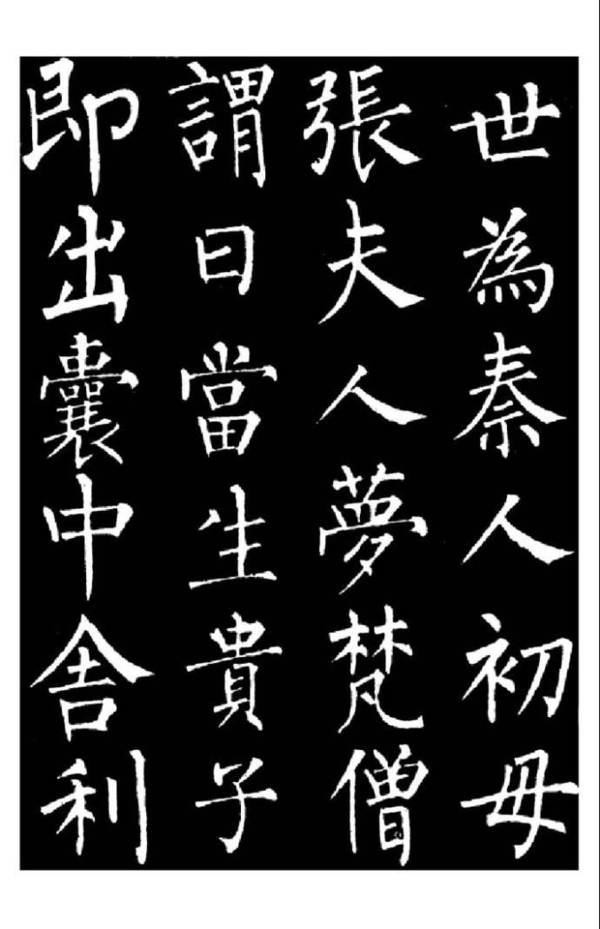 世為秦人初母
張夫人夢梵僧
謂曰當生貴子
即出囊中舍利